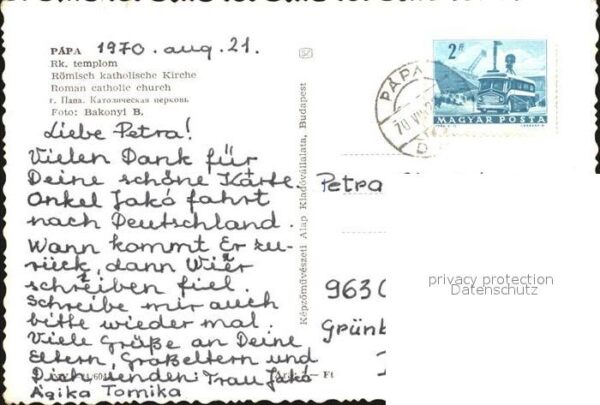 PÁPA 1970. aug. 21.
Rk. templom
Römisch katholische Kirche
Roman catholic church
г. Папа. Католическая церковь
Foto: Bakonyi B.
Liebe Petra!
Vielen Dank für
Deine schöne Karte.
Onkel Jakó fahrt
nach Deutschland.
Wann kommt Er zu-
rück, dann Wier
schreiben fiel.
Schreibe mir auch
bitte wieder mal.
Viele Grüße an Deine
Eltern, Großeltern und
Dich senden: Frau Jakó
Ágika Tomika
Ft
Képzőművészeti Alap Kiadóvállalata, Budapest
2 Ft
MAGYAR POSTA
PÁPA
70 VIII
Petra
963
Grün
privacy protection
Datenschutz